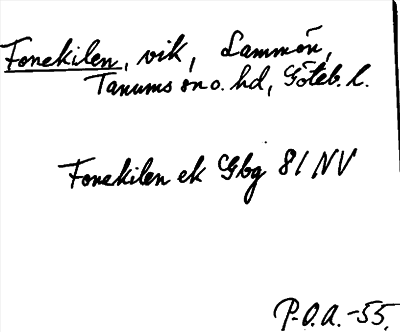 Fonekilen, vik, Lammön,
Tanums sn o. hd, Göteb. l.
Fonekilen ek Gbg 81 NV
P.O.A.-55.